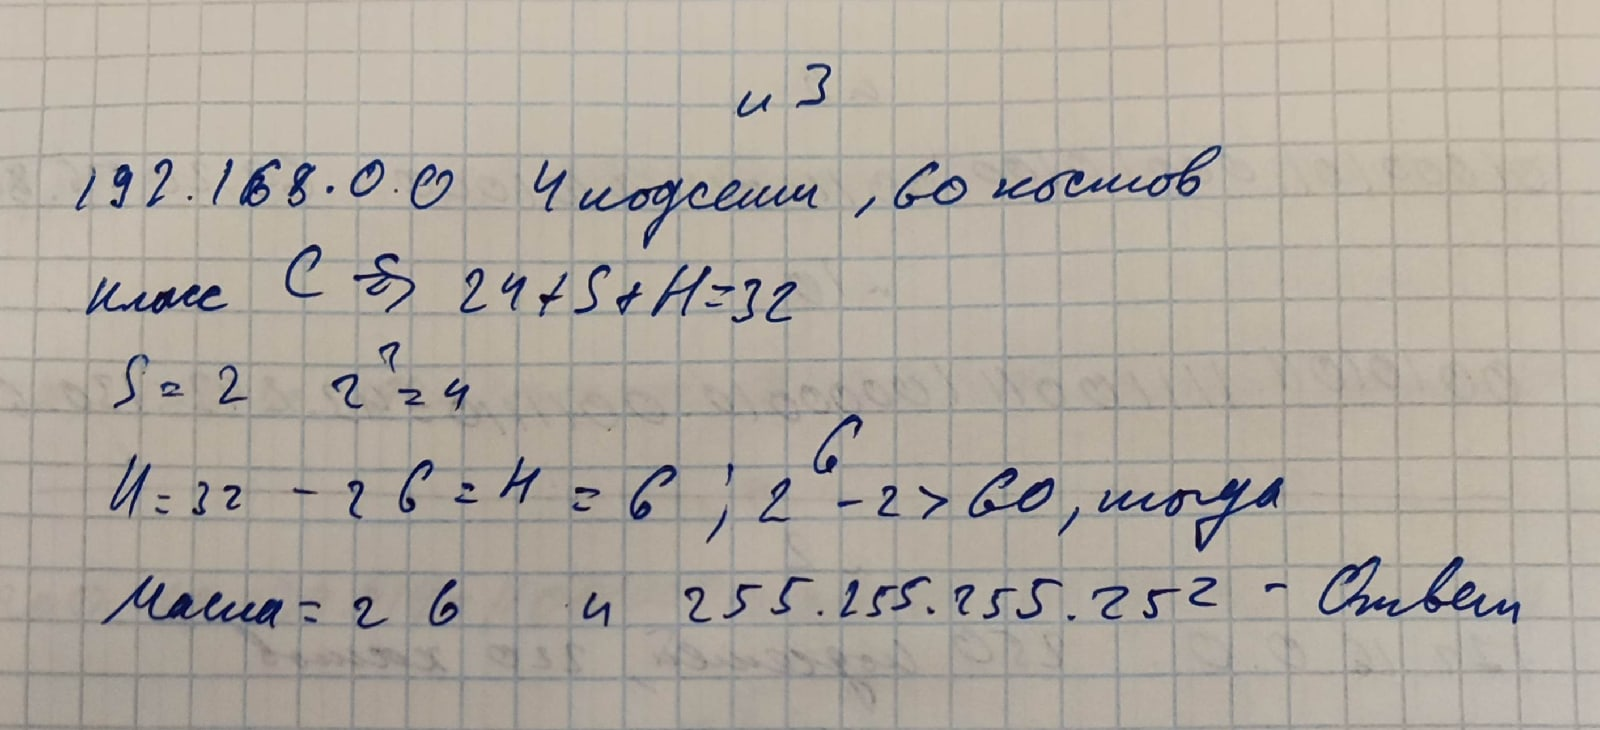 н 3
192.168.0.0 4 подсети, 60 хостов
класс C ⇒ 24+S+H=32
S=2 2^?=4
H=32-26=H=6; 2^6-2>60, тогда
Маска=26 и 255.255.255.252 - Ответ